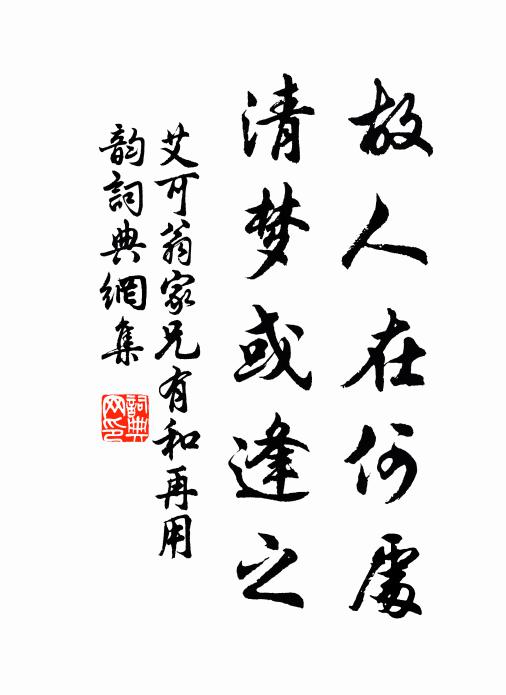 故人在何處
清梦或逢之
艾可翁家兄有和再用
韵詞典網集
詞典
网印